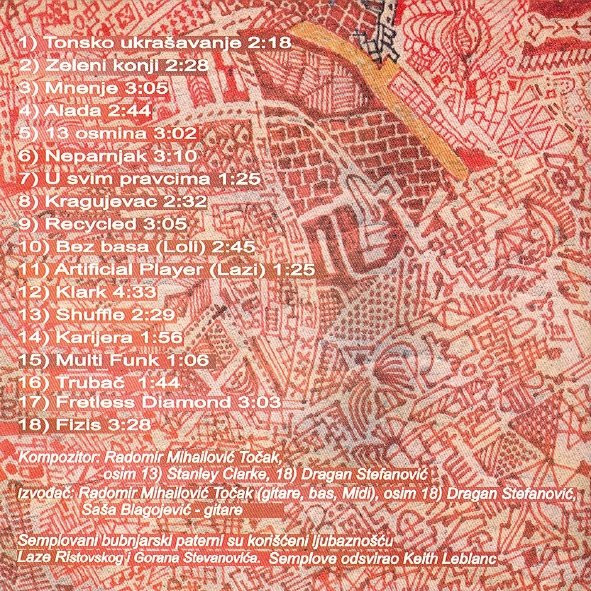 1) Tonsko ukrašavanje 2:18
2) Zeleni konji 2:28
3) Mnenje 3:05
4) Alada 2:44
5) 13 osmina 3:02
6) Neparnjak 3:10
7) U svim pravcima 1:25
8) Kragujevac 2:32
9) Recycled 3:05
10) Bez basa (Loli) 2:45
11) Artificial Player (Lazi) 1:25
12) Klark 4:33
13) Shuffle 2:29
14) Karijera 1:56
15) Multi Funk 1:06
16) Trubač 1:44
17) Fretless Diamond 3:03
18) Fizis 3:28
Kompozitor: Radomir Mihailović Točak,
osim 13) Stanley Clarke, 18) Dragan Stefanović
Izvođač: Radomir Mihailović Točak (gitare, bas, Midi), osim 18) Dragan Stefanović,
Saša Blagojević - gitare
Semplovani bubnjarski paterni su korišćeni ljubaznošću
Laze Ristovskog i Gorana Stevanovića. Semplove odsvirao Keith Leblanc